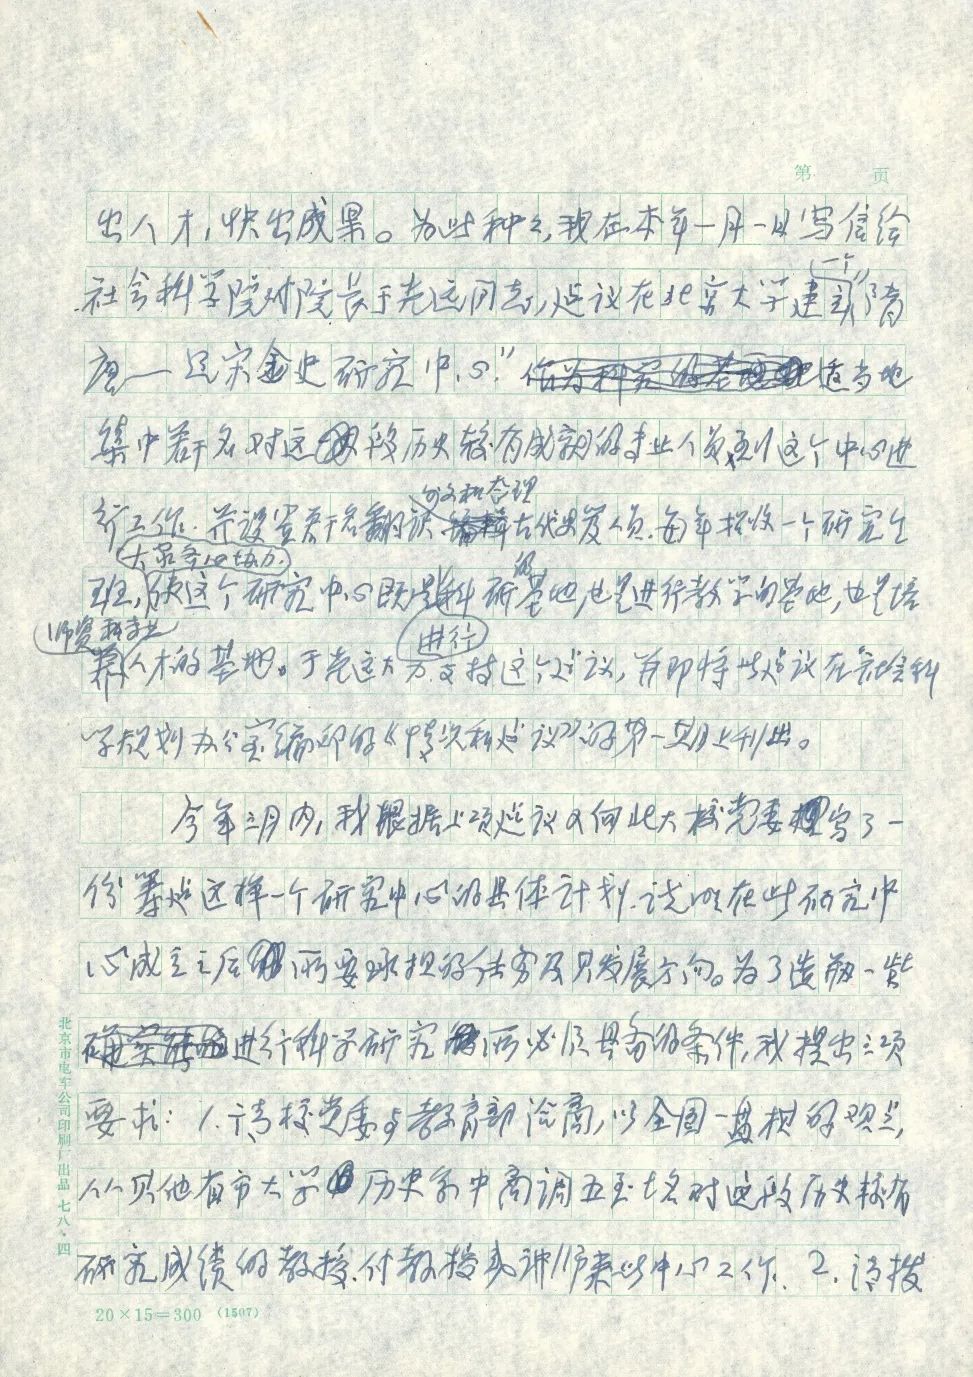 第 页
出人才，快出成果。为此种种，我在本年一月一日写信给
社会科学院付院长于光远同志，建议在北京大学建立一个“隋
唐——辽宋金史研究中心”。作为科学研究的基地 适当地
集中若干名对这段历史较有成就的专业人员，到这个中心进
行工作。并设置若干名翻译、编辑 外文和整理 古代史 人员。每年招收一个研究生
班，大家齐心协力，使这个研究中心既是科研的基地，也是进行教学的基地，也是培
养师资和专业人才的基地。于光远大力支持进行这个建议，并即将此建议在社会科
学规划办公室编印的《情况和建议》的第一期上刊出。
今年三月内，我根据上项建议又向北大校党委写了一
份筹建这样一个研究中心的具体计划，说明在此研究中
心成立之后所要承担的任务及其发展方向。为了造成一些
确实能够进行科学研究所必须具备的条件，我提出三项
要求：1.请校党委与教育部洽商，以全国一盘棋的观点，
从其他省市大学历史系中商调五至七名对这段历史较有
研究成绩的教授、付教授或讲师来此中心工作。2.请拨
北京市电车公司印刷厂出品 七八·四
20×15=300 (1507)